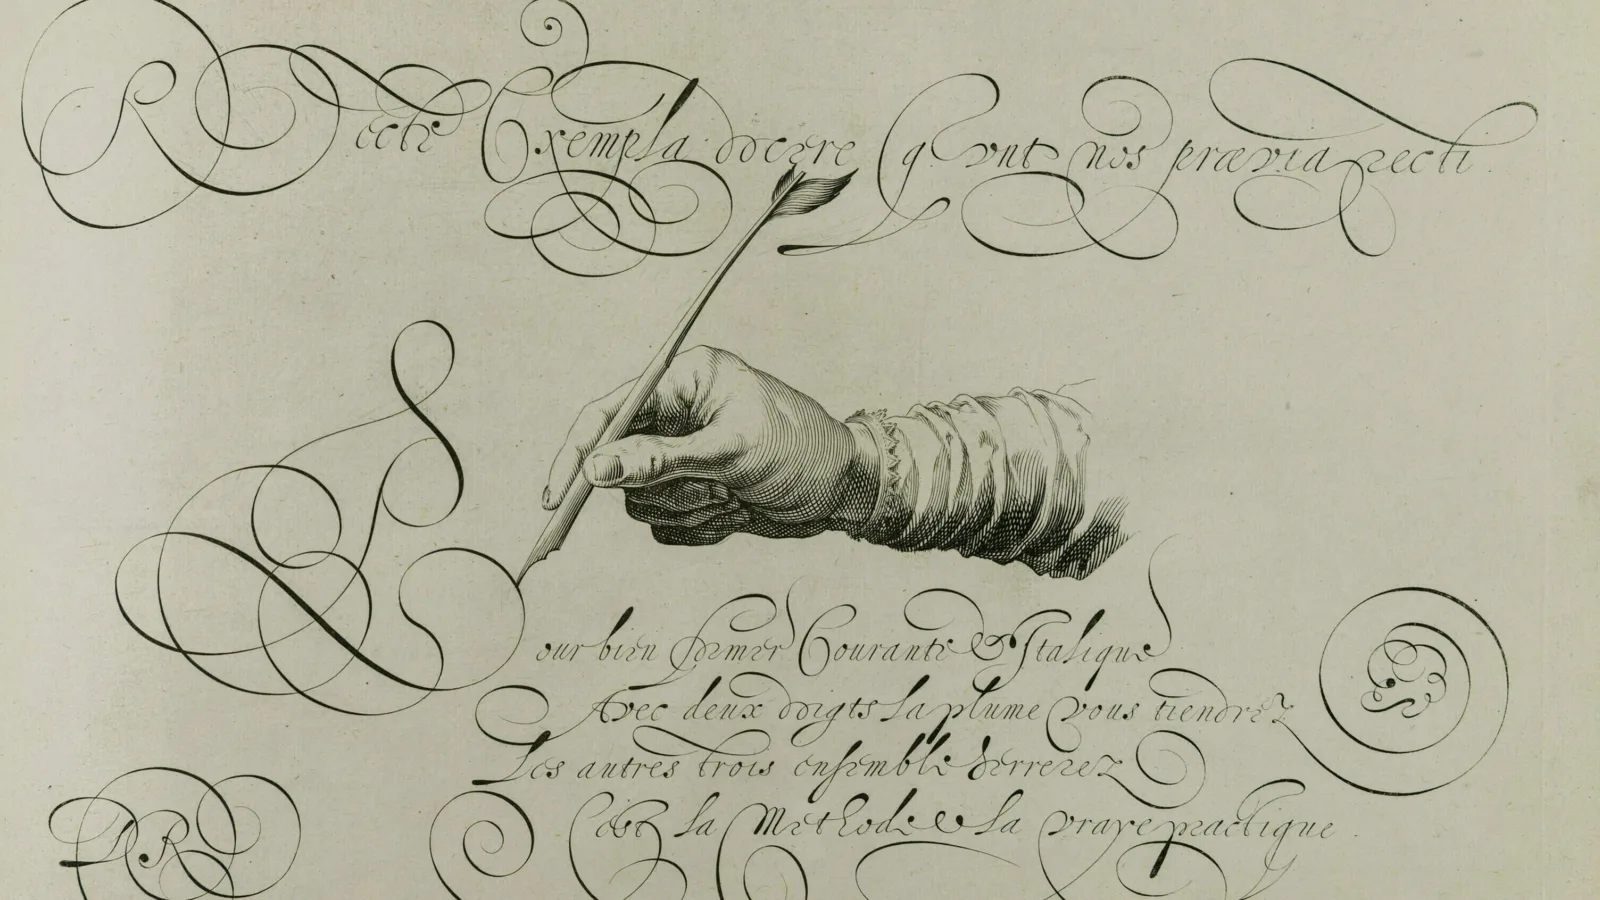 Recte Exempla docere Queunt nos prævia recti.
Pour bien former Courante & Italique
Avec deux doigts la plume vous tiendrez
Les autres trois ensemble serrerez
C'est la Methode & la vraye practique.